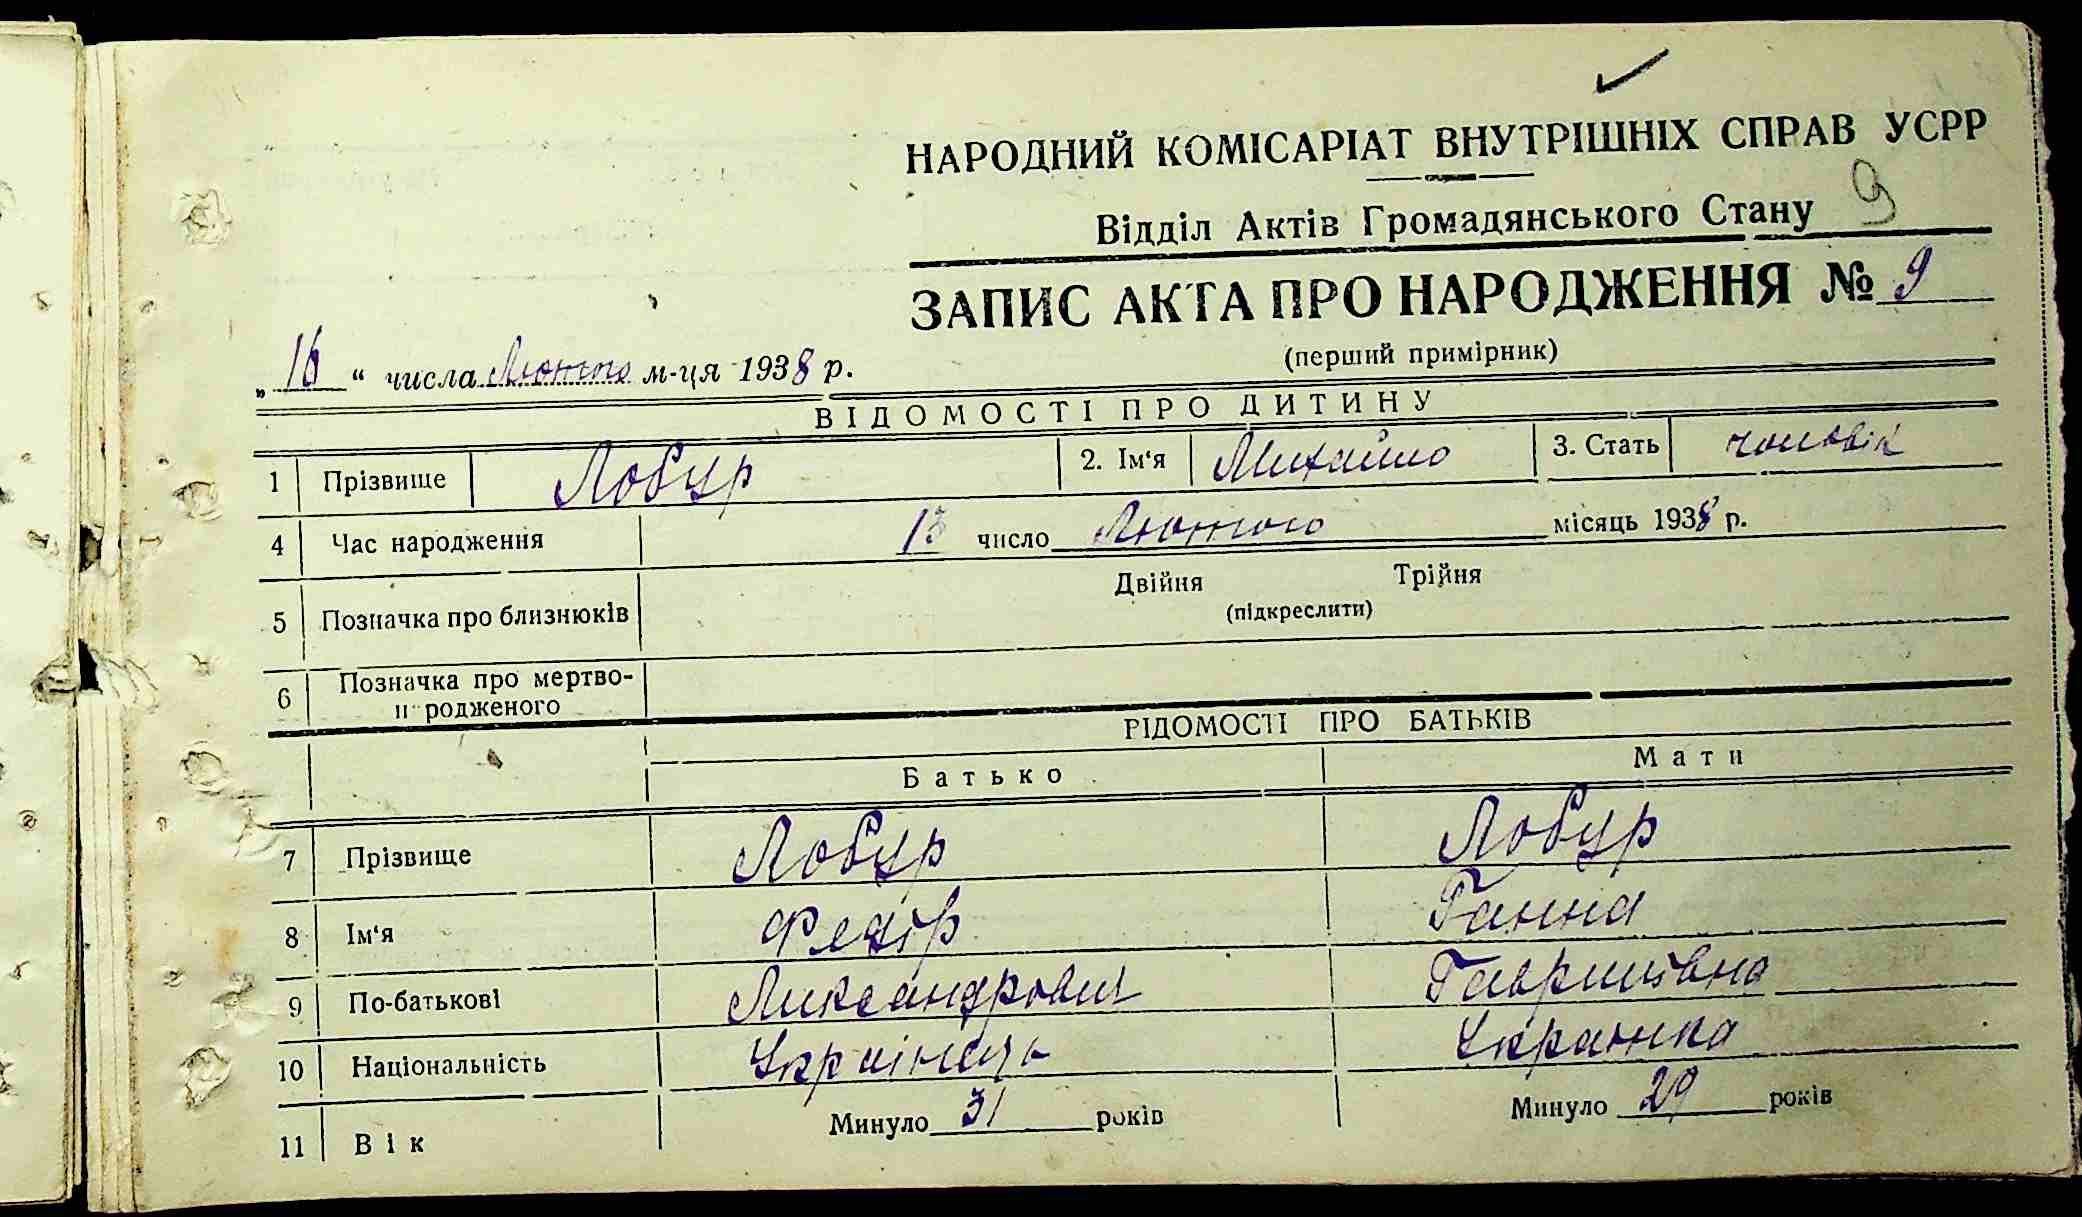 НАРОДНИЙ КОМІСАРІАТ ВНУТРІШНІХ СПРАВ УСРР
Відділ Актів Громадянського Стану 9
ЗАПИС АКТА ПРО НАРОДЖЕННЯ № 9
(перший примірник)
„16“ числа Лютого м-ця 1938 р.
ВІДОМОСТІ ПРО ДИТИНУ
1 Прізвище Лобур 2. Ім‘я Михайло 3. Стать чоловік
4 Час народження 13 число Лютого місяць 1938 р.
5 Позначка про близнюків Двійня Трійня
(підкреслити)
6 Позначка про мертво-
н родженого
РІДОМОСТІ ПРО БАТЬКІВ
Батько Мати
7 Прізвище Лобур Лобур
8 Ім‘я Федір Ганна
9 По-батькові Ликсандрович Гаврилівна
10 Національність Українець Українка
11 Вік Минуло 31 років Минуло 29 років